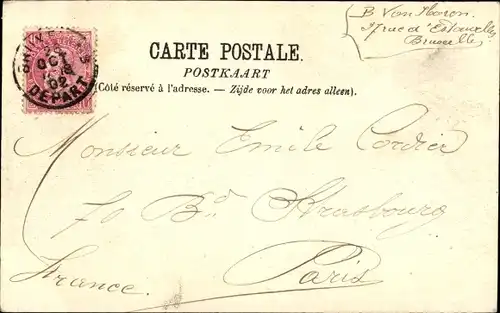 B. Van
17 rue d'
Bruxelles
CARTE POSTALE.
POSTKAART
(Côté réservé à l'adresse. — Zijde voor het adres alleen).
OCT
02
DEPART
Monsieur Emile Cordier
70 Bd Strasbourg
Paris
France.